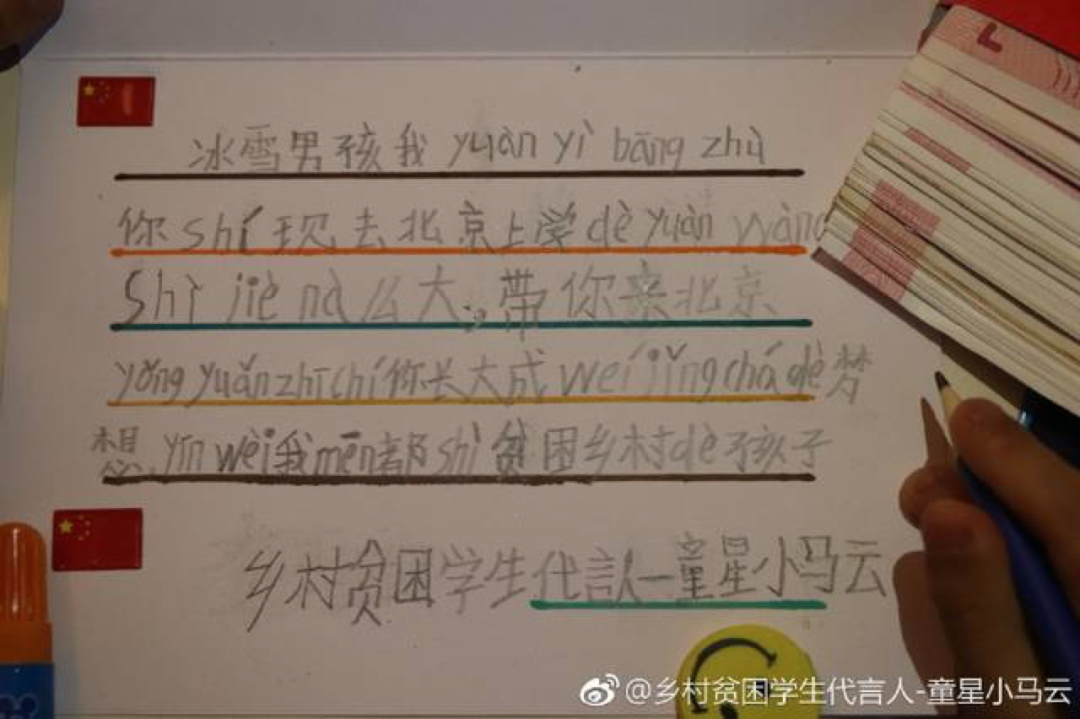 冰雪男孩我yuàn yì bāng zhù
你shí现去北京上学dè yuàn wàng
Shì jiè nà么大。带你来北京
yǒng yuǎn zhī chí你长大成wéi jǐng chá dè梦
想，yīn wèi我mēn都shì贫困乡村dè孩子
乡村贫困学生代言人—童星小马云
@乡村贫困学生代言人-童星小马云